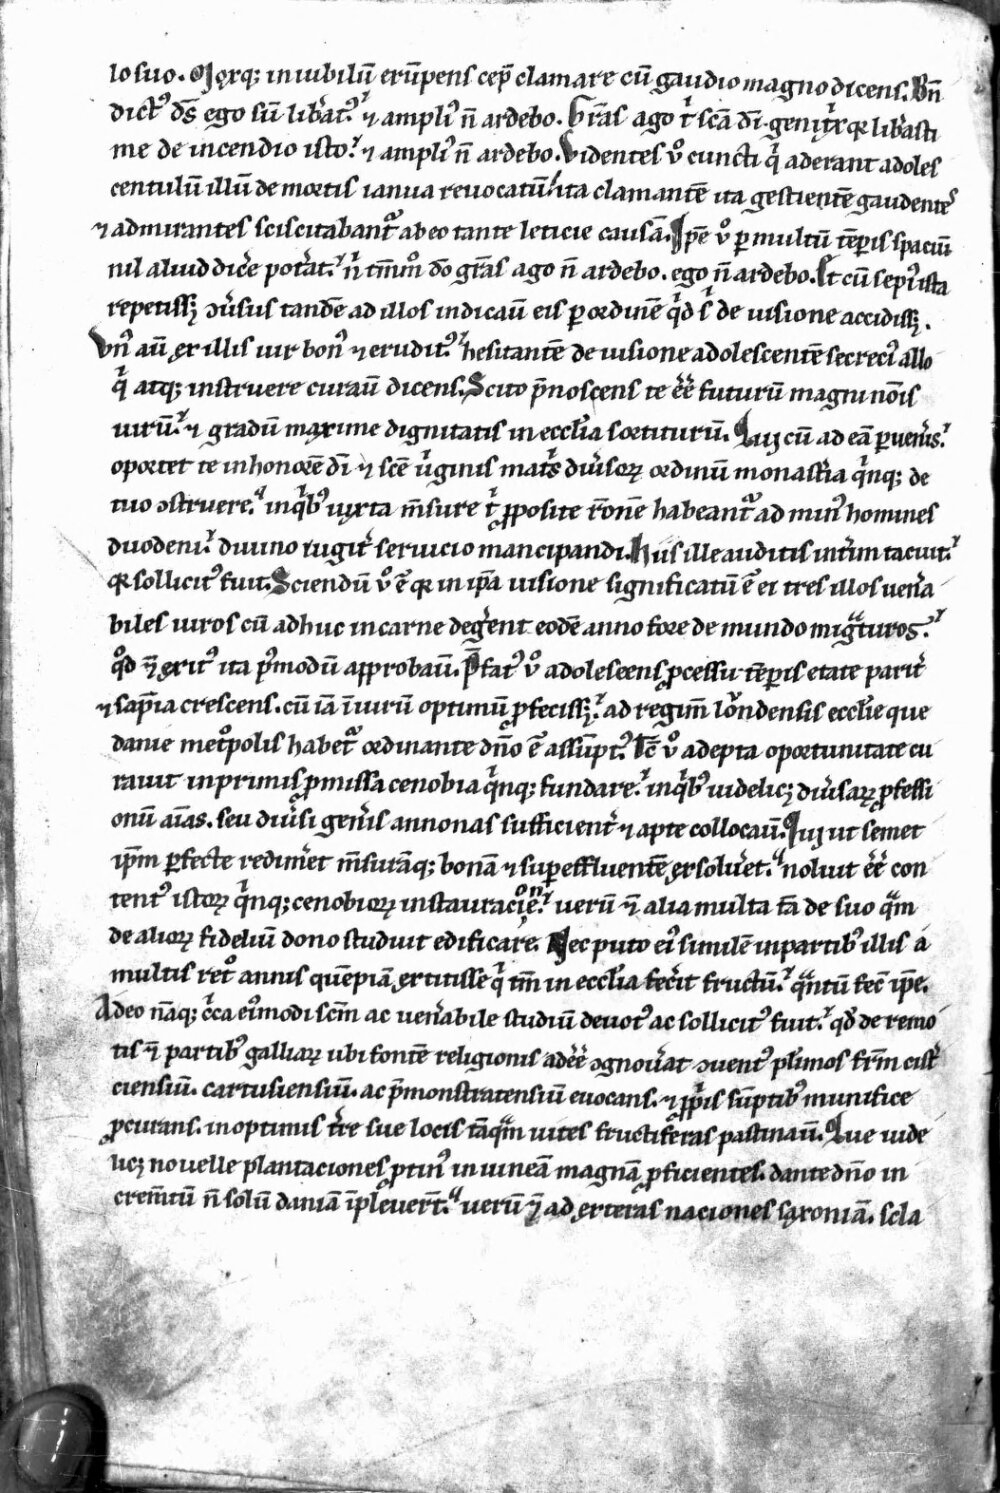 lo suo. Moxq; in iubilū erūpens cep̄ clamare cū gaudio magno dicens. Bn̄
dictꝰ dꝰ ego sū liƀatꝰ. ⁊ ampliꝰ n̄ ardebo. Gr̄as ago tͥ sc̄a dī genitͥx qꝛ liƀasti
me de incendio isto. ⁊ ampliꝰ n̄ ardebo. Videntes ꝟo cuncti qͥ aderant adoles
centulū illū de mortis ianua reuocatū ita clamantē ita gestientē gaudentes
⁊ admirantes sciscitabantᷣ ab eo tante leticie causā. Ip̄e ꝟo ꝑ multū tēꝑis spaciū
nil aliud dicͤe potͤat. n̄ tm̄mͦ dō gr̄as ago n̄ ardebo. ego n̄ ardebo. Et cū sepiꝰ ista
repetissꝫ ꝯuͥsus tandē ad illos indicauͭ eis ꝑ ordinē qͥd sͥ de uisione accidissꝫ.
Vnꝰ aū ex illis uir bonꝰ ⁊ eruditꝰ hesitantē de uisione adolescentē secreciꝰ allo
qͥ atq; instruere curauͭ dicens. Scito p̄noscens te ēē futurū magni noīs
uirū. ⁊ gradū maxime dignitatis in eccl̄ia sortiturū. Quꝫ cū ad eā ꝑueneris.
oportet te in honorē dī ⁊ sc̄e uͥginis mat̄s diuͤsoꝝ ordinū monast̄ia qͥnq; de
tuo ꝯstruere. in qͥbꝰ iuxta m̄sure tͥ ꝓposite rōnē habeantᷣ ad minꝰ homines
duodeni. diuino iugitͤ seruicio mancipandi. Hiis ille auditis intͥm tacuit.
qꝛ sollicitꝰ fuit. Sciendū ꝟo ē qꝛ in ip̄a uisione significatū ē ei tres illos uen̄a
biles uiros cū adhuc in carne degͤent eodē anno fore de mundo migᷓturos.
qͦd ⁊ exitꝰ ita pͦmodū approbauͭ. P̄fatꝰ ꝟo adolescens ꝓcessu tēꝑis etate paritͤ
⁊ sapīa crescens. cū iā ī uirū optimū ꝓfecissꝫ. ad regim̄ londensis eccl̄ie que
danie metͦpolis habetᷣ ordinante dn̄o ē assūptꝰ. Hic ꝟo adepta oportunitate cu
rauit in primis ꝓmissa cenobia qͥnq; fundare. in qͥbꝰ uidelicꝫ diuͤsaꝝ ꝓfessi
onū aīas. seu diuͤsi genͤis annonas sufficientͤ ⁊ apte collocauͭ. Quꝫ ut semet
ip̄m ꝑfecte redimͤet m̄surāq; bonā ⁊ suꝑeffluentē exsoluͤet. noluit ēē con
tentꝰ istoꝝ qͥnq; cenobioꝝ instauracione. uerū ⁊ alia multa tā de suo qᷓm
de alioꝝ fideliū dono studuit edificare. Nec puto eiꝰ similē in partibꝰ illis a
multis retͦ annis quēpiā extitisse qͥ tm̄ in eccl̄ia fecͥit fructū. qᷓntū fec̄ ip̄e.
Adeo nāq; cͥca eiꝰmodi sc̄m ac uenͤabile studiū deuotꝰ ac sollicitꝰ fuit. qd̄ de remo
tis ⁊ partibꝰ galliaꝝ ubi fontē religionis adēē ꝯgnouͤat ꝯuentꝰ pl̄imos fr̄m cistͤ
ciensiū. cartusiensiū. ac p̄monstratensiū euocans. ⁊ ꝓpͥis sūptibꝰ munifice
ꝓcurans. in optimis tͤre sue locis tāqᷓm uites fructiferas pastinauͭ. Que uide
licꝫ nouelle plantaciones ꝓtinꝰ in uineā magnā ꝓficientes. dante dn̄o in
crem̄tū n̄ solū daniā īpleuerūt. uerū ⁊ ad exteras naciones saxoniā. scla